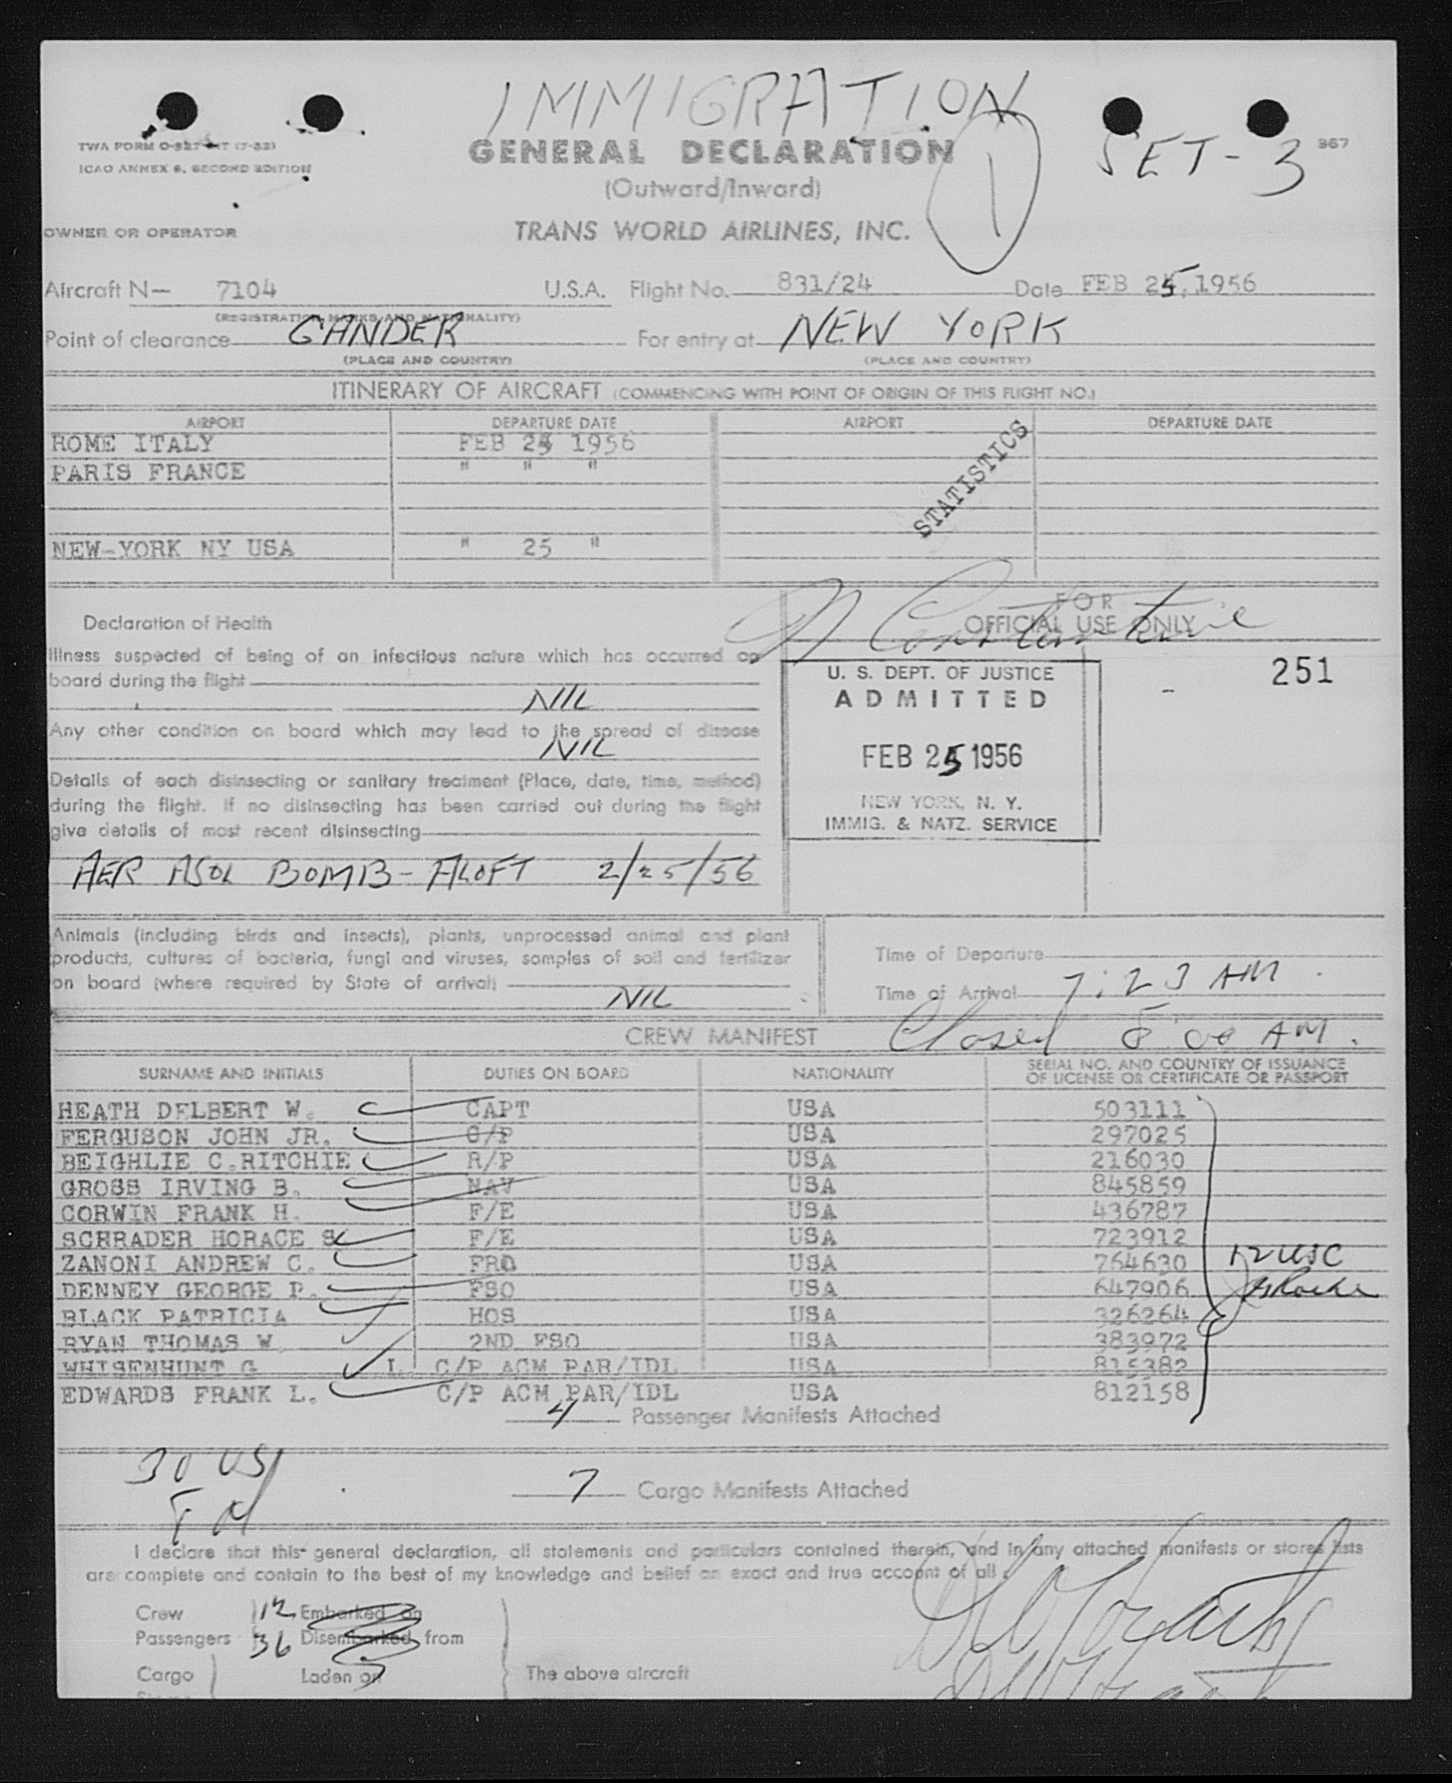 IMMIGRATION
TWA FORM O-527-NT (7-53)
ICAO ANNEX 9, SECOND EDITION
GENERAL DECLARATION
(Outward/Inward)
1
SET-3
367
OWNER OR OPERATOR
TRANS WORLD AIRLINES, INC.
Aircraft N— 7104 U.S.A. Flight No. 831/24 Date FEB 25, 1956
(REGISTRATION MARKS AND NATIONALITY)
Point of clearance GANDER For entry at NEW YORK
(PLACE AND COUNTRY) (PLACE AND COUNTRY)
ITINERARY OF AIRCRAFT (COMMENCING WITH POINT OF ORIGIN OF THIS FLIGHT NO.)
AIRPORT DEPARTURE DATE AIRPORT DEPARTURE DATE
ROME ITALY FEB 24 1956
PARIS FRANCE " " "
STATISTICS
NEW-YORK NY USA " 25 "
FOR
OFFICIAL USE ONLY
Declaration of Health
Illness suspected of being of an infectious nature which has occurred on
board during the flight
NIL
Any other condition on board which may lead to the spread of disease
NIL
Details of each disinsecting or sanitary treatment (Place, date, time, method)
during the flight. If no disinsecting has been carried out during the flight
give details of most recent disinsecting
AER ASOL BOMB - ALOFT 2/25/56
U. S. DEPT. OF JUSTICE
ADMITTED
FEB 25 1956
NEW YORK, N. Y.
IMMIG. & NATZ. SERVICE
251
Animals (including birds and insects), plants, unprocessed animal and plant
products, cultures of bacteria, fungi and viruses, samples of soil and fertilizer
on board (where required by State of arrival)
NIL
Time of Departure
Time of Arrival 7:23 AM
CREW MANIFEST Closed 8:00 AM.
SURNAME AND INITIALS DUTIES ON BOARD NATIONALITY SERIAL NO. AND COUNTRY OF ISSUANCE
OF LICENSE OR CERTIFICATE OR PASSPORT
HEATH DELBERT W. CAPT USA 503111
FERGUSON JOHN JR. C/P USA 297025
BEIGHLIE C.RITCHIE R/P USA 216030
GROSS IRVING B. NAV USA 845859
CORWIN FRANK H. F/E USA 436787
SCHRADER HORACE S F/E USA 723912
ZANONI ANDREW C. FRO USA 764630
12 USC
DENNEY GEORGE P. FSO USA 647906
BLACK PATRICIA HOS USA 326264
RYAN THOMAS W. 2ND FSO USA 383972
WHISENHUNT G L. C/P ACM PAR/IDL USA 815382
EDWARDS FRANK L. C/P ACM PAR/IDL USA 812158
4 Passenger Manifests Attached
30 US
7 Cargo Manifests Attached
I declare that this general declaration, all statements and particulars contained therein, and in any attached manifests or stores lists
are complete and contain to the best of my knowledge and belief an exact and true account of all
Crew 12 Embarked on
Passengers 36 Disembarked from
Cargo Laden on The above aircraft